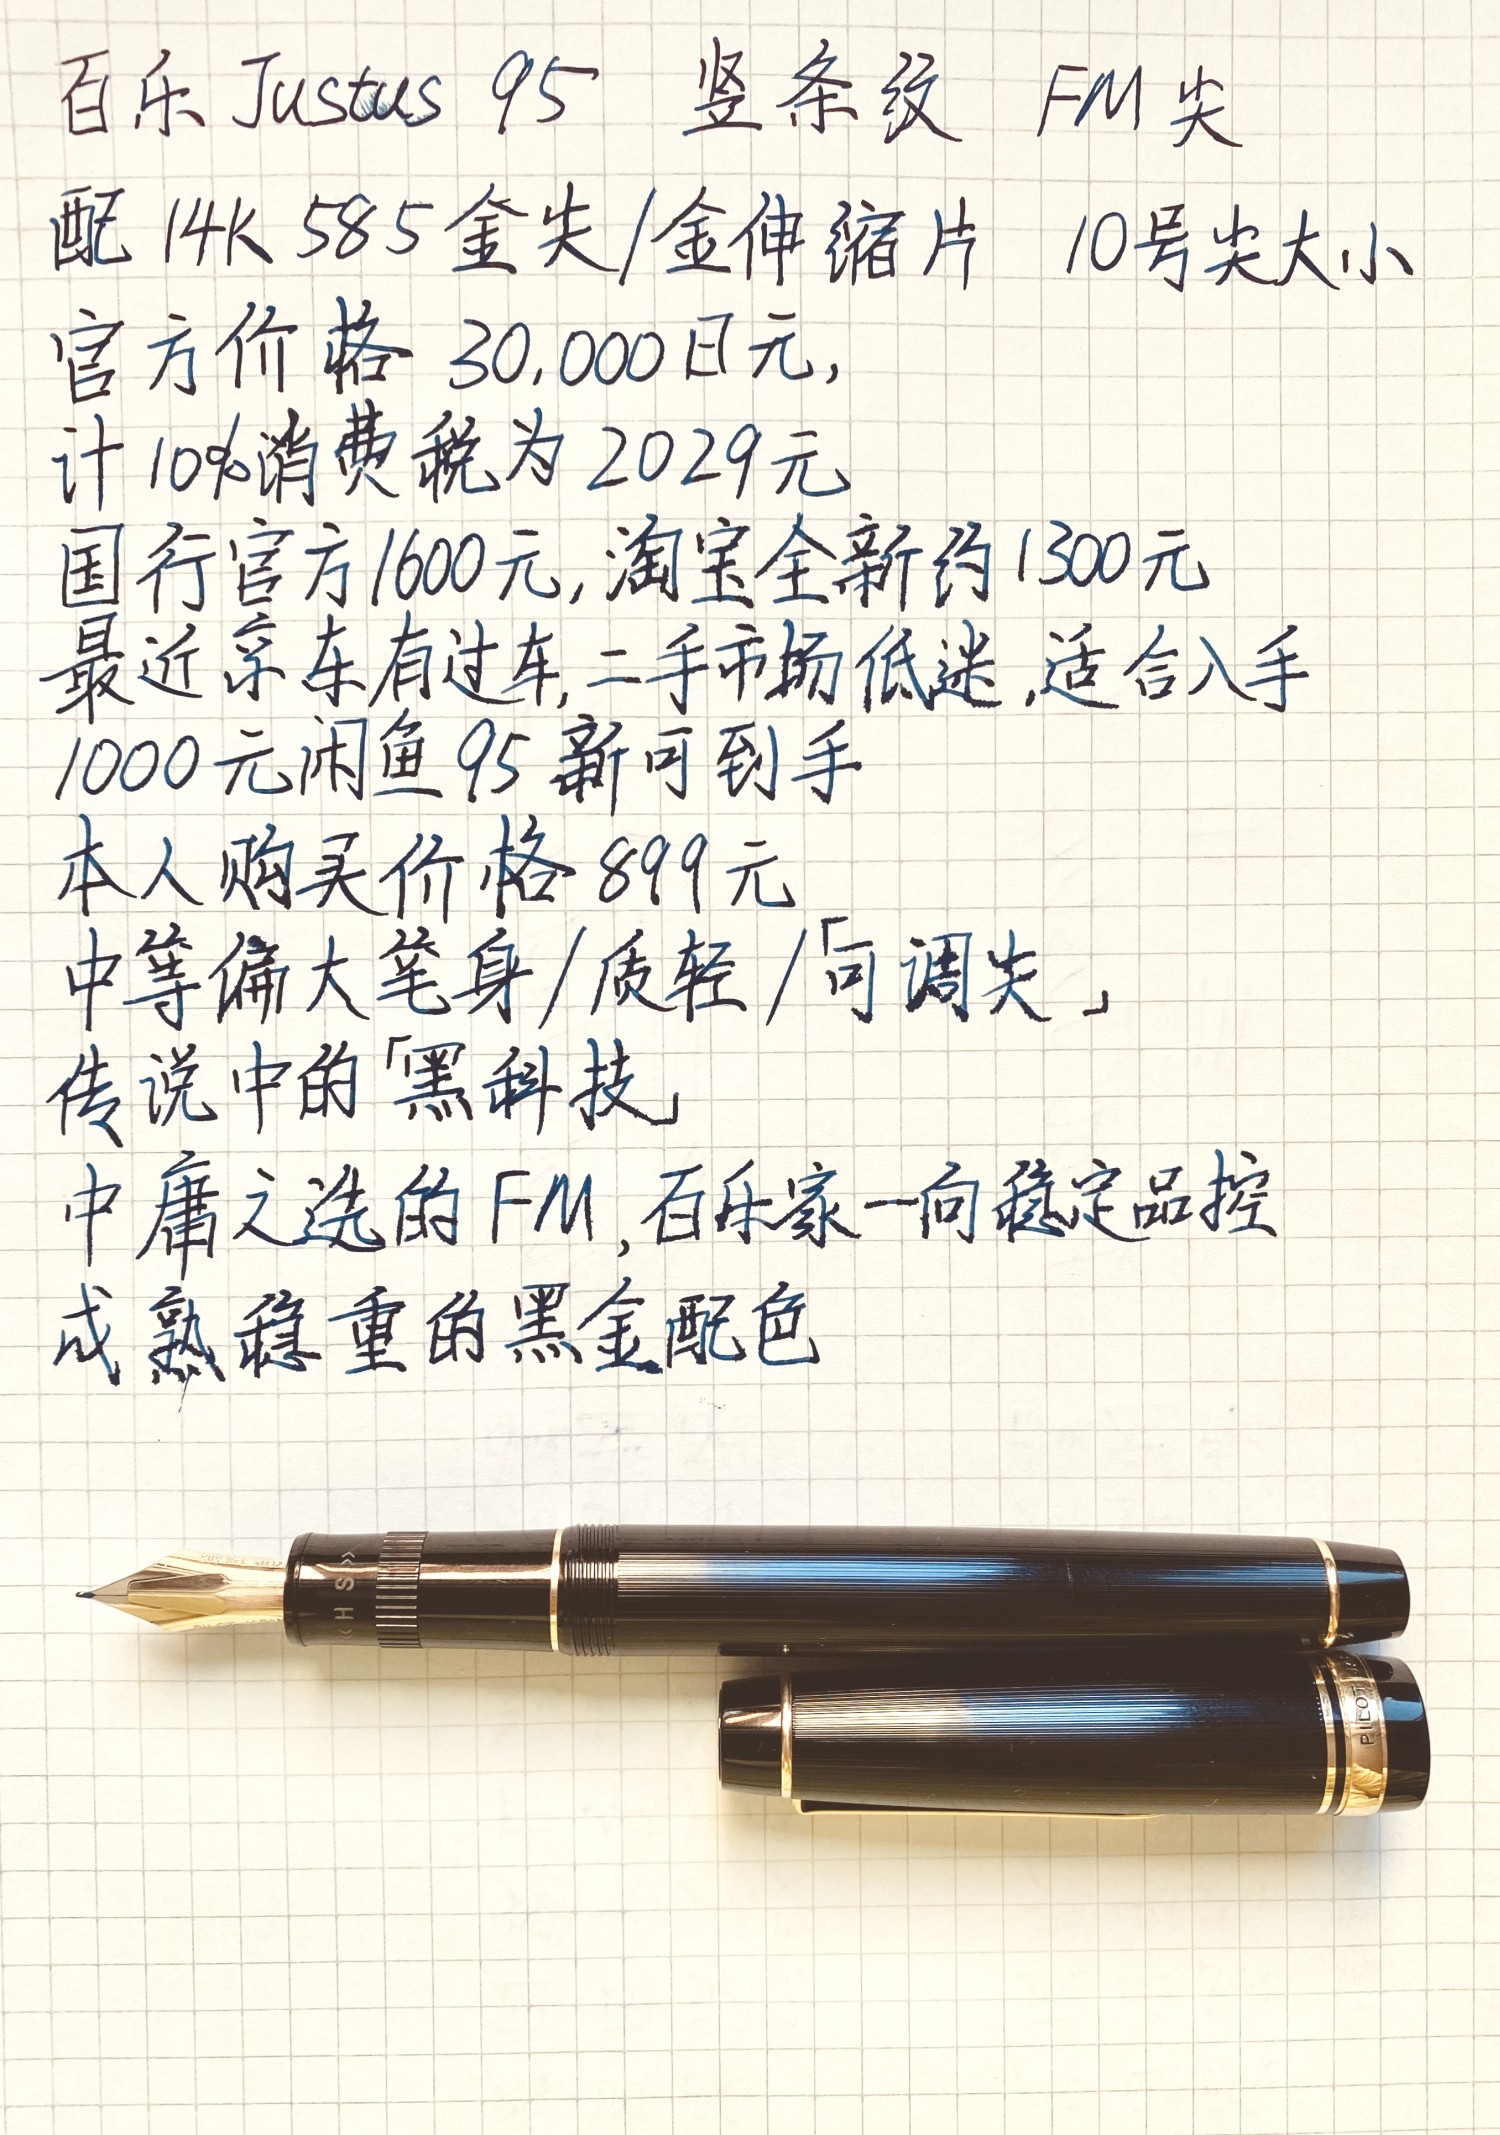 百乐 Justus 95 竖条纹 FM尖
配 14K 585 金尖/金伸缩片 10号尖大小
官方价格 30,000日元,
计10%消费税为2029元
国行官方1600元,淘宝全新约1300元
最近京东有过车,二手市场低迷,适合入手
1000元闲鱼95新可到手
本人购买价格899元
中等偏大笔身/质轻/「可调尖」
传说中的「黑科技」
中庸之选的FM,百乐家一向稳定品控
成熟稳重的黑金配色
«H S»
PILOT